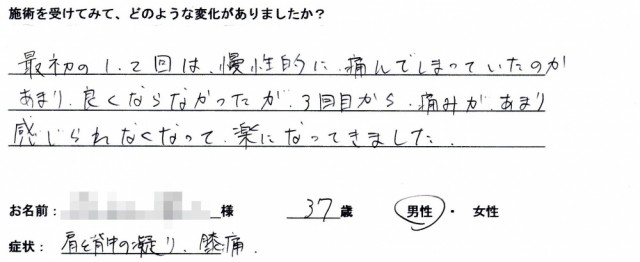 施術を受けてみて、どのような変化がありましたか？
最初の1、2回は、慢性的に、痛んでしまっていたのが
あまり、良くならなかったが、3回目から、痛みが、あまり
感じられなくなって、楽になってきました。
お名前： 様 37歳 男性・女性
症状：肩と背中の凝り、膝痛、